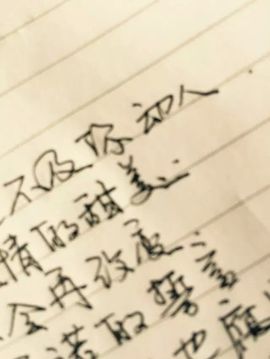 不及你动人
情的甜美
会再改变
诺的誓言
也魔